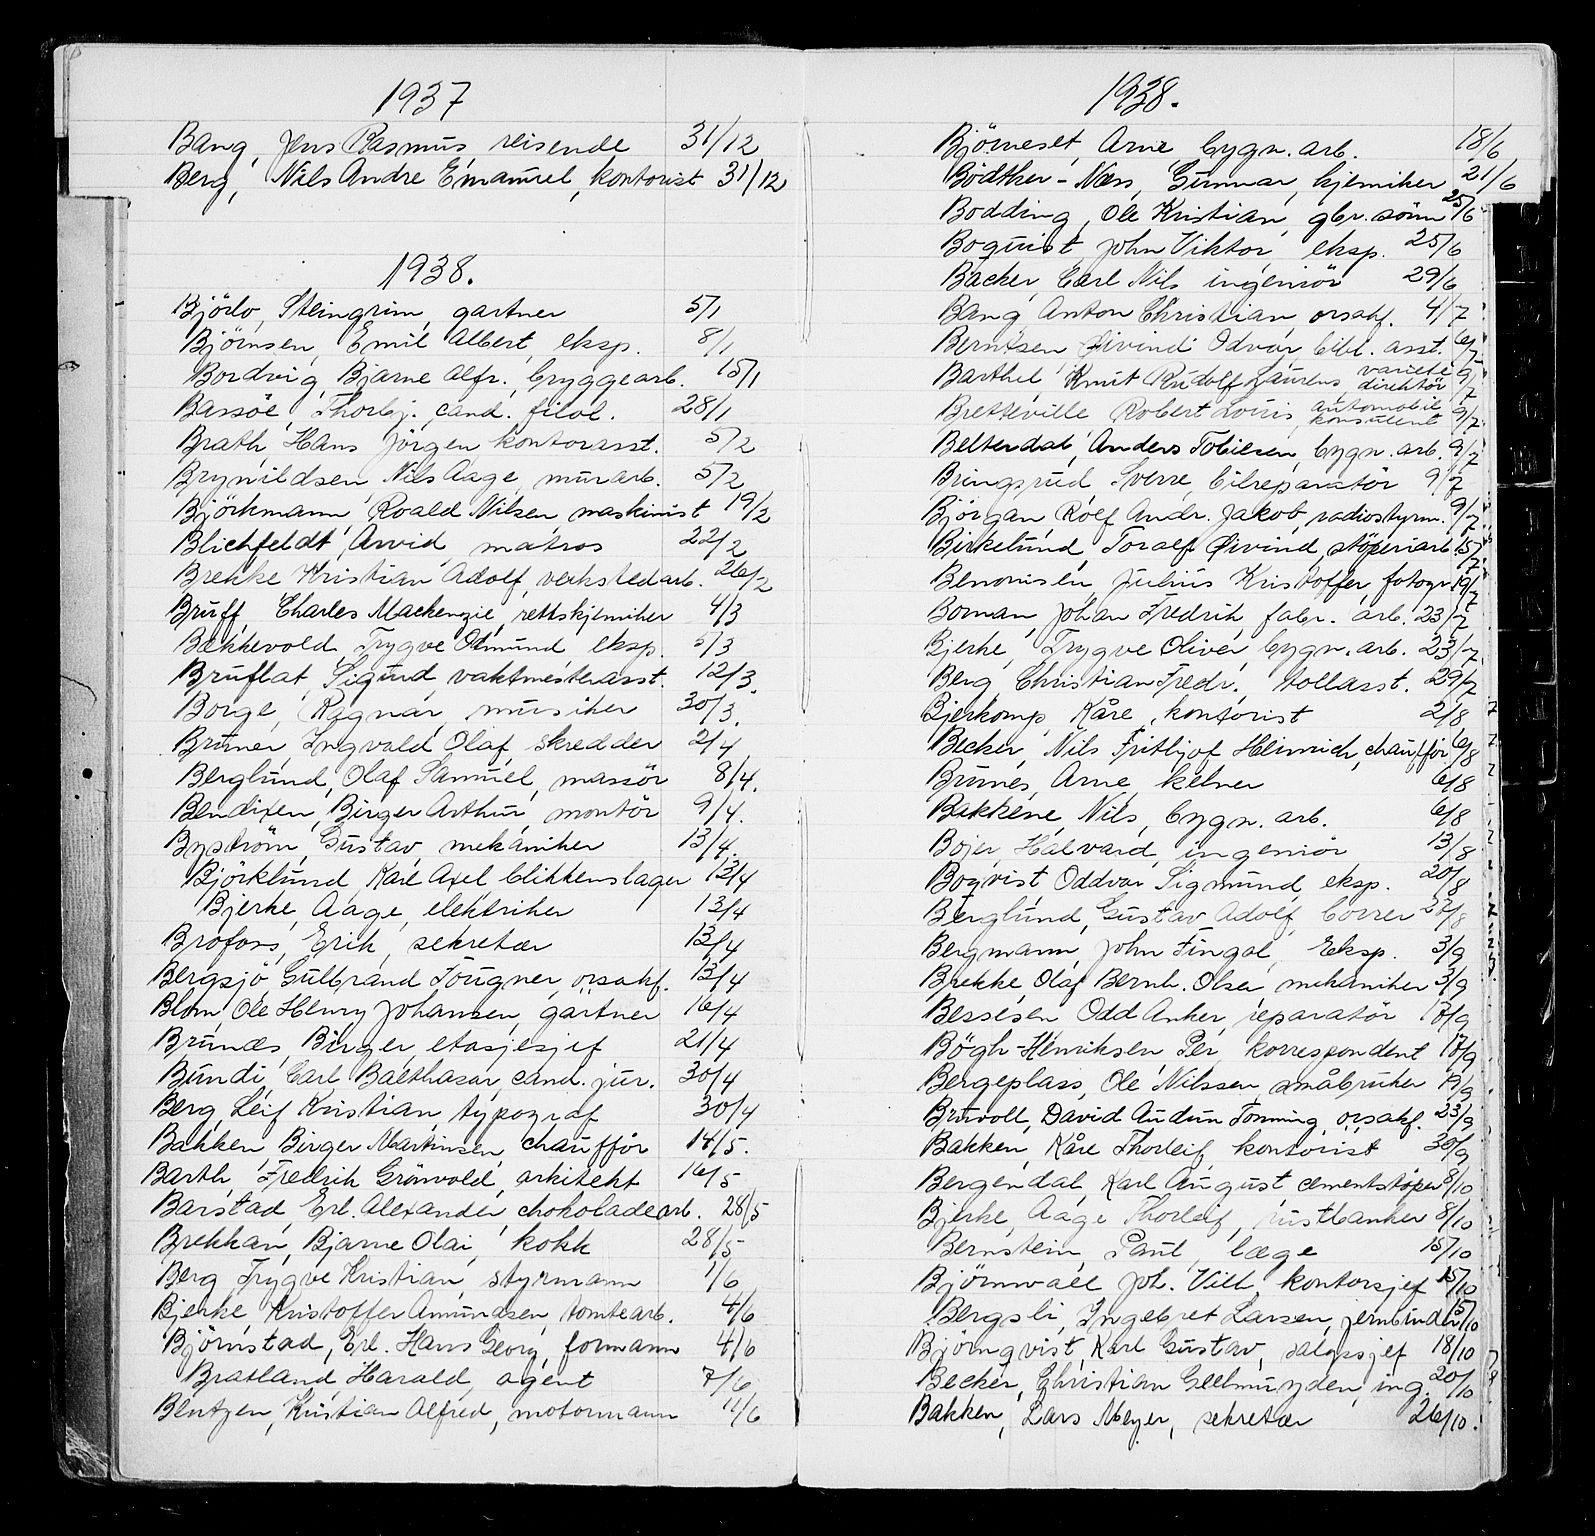 1937
Bang, Jens Rasmus, reisende 31/12
Berg, Nils Andre Emanuel, kontorist 31/12
1938.
Björlo, Steingrim, gartner 5/1
Björnsen, Emil Albert, eksp. 8/1
Bordvig, Bjarne Alfr., bryggearb. 15/1
Bassöe, Thorbj. cand. filol. 28/1
Brath, Hans Jörgen kontorasst. 5/2
Brynildsen, Nils Aage, murarb. 5/2
Björkmann, Roald Nilsen maskinist 19/2
Blichfeldt, Arvid, matros 22/2
Brekke Kristian Adolf, verkstedarb. 26/2
Bruff, Charles Mackenzie, rettskjemiker 4/3
Bekkevold, Trygve Osmund eksp. 5/3
Bruflat, Sigurd vaktmesterasst. 12/3.
Borge, Ragnar, musiker 30/3.
Bruner, Ingvald Olaf, skredder 2/4
Berglund, Olaf Samuel, massör 8/4.
Bendixen, Birger Arthur, montör 9/4.
Byström, Gustav, mekaniker 13/4.
Björklund, Karl Axel blikkenslager 13/4
Bjerke, Aage, elektriker 13/4
Brofoss, Erik, sekretær 13/4
Bergsjö, Gulbrand Fougner, orsakf. 13/4
Blom, Ole Henry Johansen, gartner 16/4
Brunæs, Birger, etasjesjef 21/4
Bundi, Carl Balthasar, cand. jur. 30/4
Berg, Leif Kristian, typograf 30/4
Bakken, Birger Martinsen, chaufför 14/5.
Barth, Fredrik Grönvold, arkitekt 16/5
Barstad, Erl. Alexander, chokoladearb. 28/5
Brekkan, Bjarne Olai, kokk 28/5
Berg Trygve Kristian, styrmann 1/6
Bjerke, Kristoffer Amundsen, tomtearb. 4/6
Björnstad, Erl. Hans Georg, formann 4/6
Bratland, Harald, agent 7/6
Bentzen, Kristian Alfred, motormann 11/6
1938.
Björneset, Arne, bygn. arb. 18/6
Bödtker-Næss, Gunnar, kjemiker 21/6
Bodding, Ole Kristian, gbr. sönn 25/6
Boquist, John Viktor, eksp. 25/6
Backer, Carl Nils ingeniör 29/6
Bang Anton Christian, orsakf. 4/7
Berntsen Øivind Odvar bibl. asst. 6/7
Barthel, Knut Rudolf Laurens varieté direktör 9/7
Bretteville Robert Louis, automobil konsulent 9/7
Belterdal, Anders Tobiesen, bygn. arb. 9/7
Bringsrud, Sverre, bilreparatör 9/7
Björgan, Rolf Andr. Jakob, radiostyrm. 9/7
Birkelund, Toralf Øivind, stöperiarb. 15/7
Benonisen, Julius Kristoffer, fotogr. 19/7
Boman, Johan Fredrik, fabr. arb. 23/7
Bjerke, Trygve Oliver, bygn. arb. 23/7.
Berg, Christian Fredr., tollasst. 29/7
Bjerkomp, Kåre, kontorist 2/8
Becker, Nils Fritjof Heinrich, chaufför 6/8
Brunes, Arne, kelner 6/8
Bakkene, Nils, bygn. arb. 6/8
Bojer, Halvard, ingeniör 13/8
Boqvist Oddvar Sigmund, eksp. 20/8
Berglund, Gustav Adolf, borer 27/8
Bergmann, John Fingal, Eksp. 3/9
Brekke, Olaf Bernh. Olsen mekaniker 3/9
Bessesen Odd Anker, reparatör 17/9
Bögh-Henriksen Per, korrespondent 17/9
Bergeplass, Ole Nilssen småbruker 19/9
Bruvoll, David Audun Tonning, orsakf. 23/9
Bakken, Kåre Thorleif, kontorist 30/9
Bergendal, Karl August, cementstöper 8/10
Bjerke, Aage Thorleif, rustbanker 8/10
Bernstein, Paul, læge 15/10
Björnwall Joh. Vilh. kontorsjef 15/10
Bergsli, Ingebret Larsen, jernbinder 15/10
Björnqvist, Karl Gustav, salgssjef 18/10
Becker, Christian Geelmuyden, ing. 20/10
Bakken, Lars Meyer, sekretær 26/10.